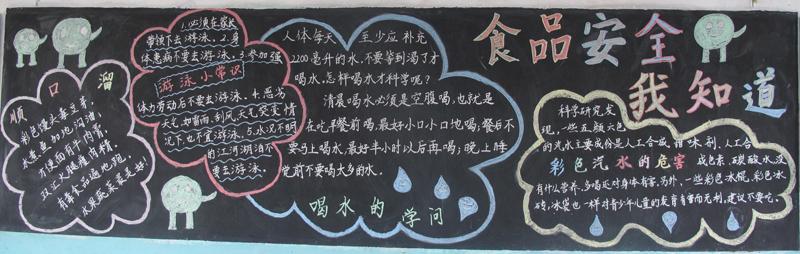 顺口溜
彩色馒头毒豆芽,
水煮鱼加地沟油,
方便面有牛肉膏,
双汇火腿瘦肉精,
有毒食品遍地现,
瓜果蔬菜是良
1.必须在家长
带领下去游泳。2.身
体患病不要去游泳。3.参加强
游泳小常识
体力劳动后不要去游泳。4.恶劣
天气如雷雨、刮风、天气突变情
况下也不宜游泳。5.水况不明
的江河湖泊不
要去游泳。
人体每天 至少应补充
2200毫升的水,不要等到渴了才
喝水,怎样喝水才科学呢?
清晨喝水必须是空腹喝,也就是
在吃早餐前喝,最好小口小口地喝;餐后不
要马上喝水,最好半小时以后再喝;晚上睡
觉前不要喝太多的水。
喝水的学问
食品安全
我知道
科学研究发
现,一些五颜六色
的汽水主要成份是人工合成甜味剂、人工合
彩色汽水的危害
成色素、碳酸水,没
有什么营养,多喝还对身体有害。另外,一些彩色冰棍、彩色冰
砖、冰袋也一样对青少年儿童的发育有害而无利,建议不要吃。